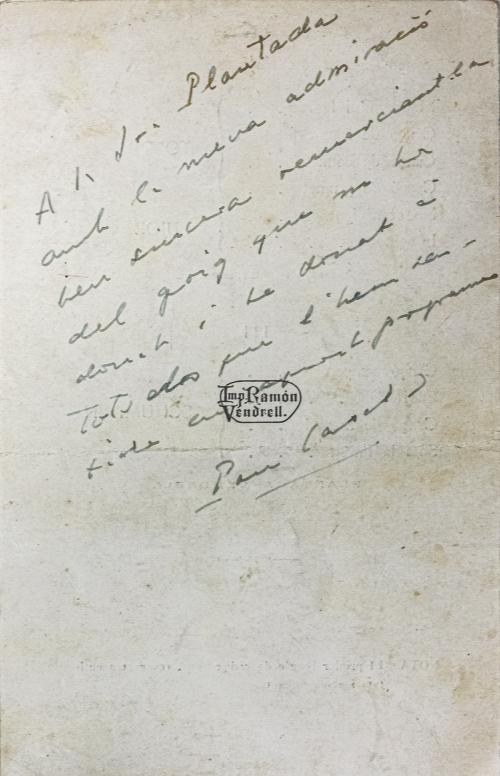 A la Sra Plantada
amb la meva admiració
ben sincera remerciant-la
del goig que m ha
donat i ha donat a
Tots els que l'hem sen-
tida en aquest programa
Pau Casals
Imp. Ramón
Vendrell.